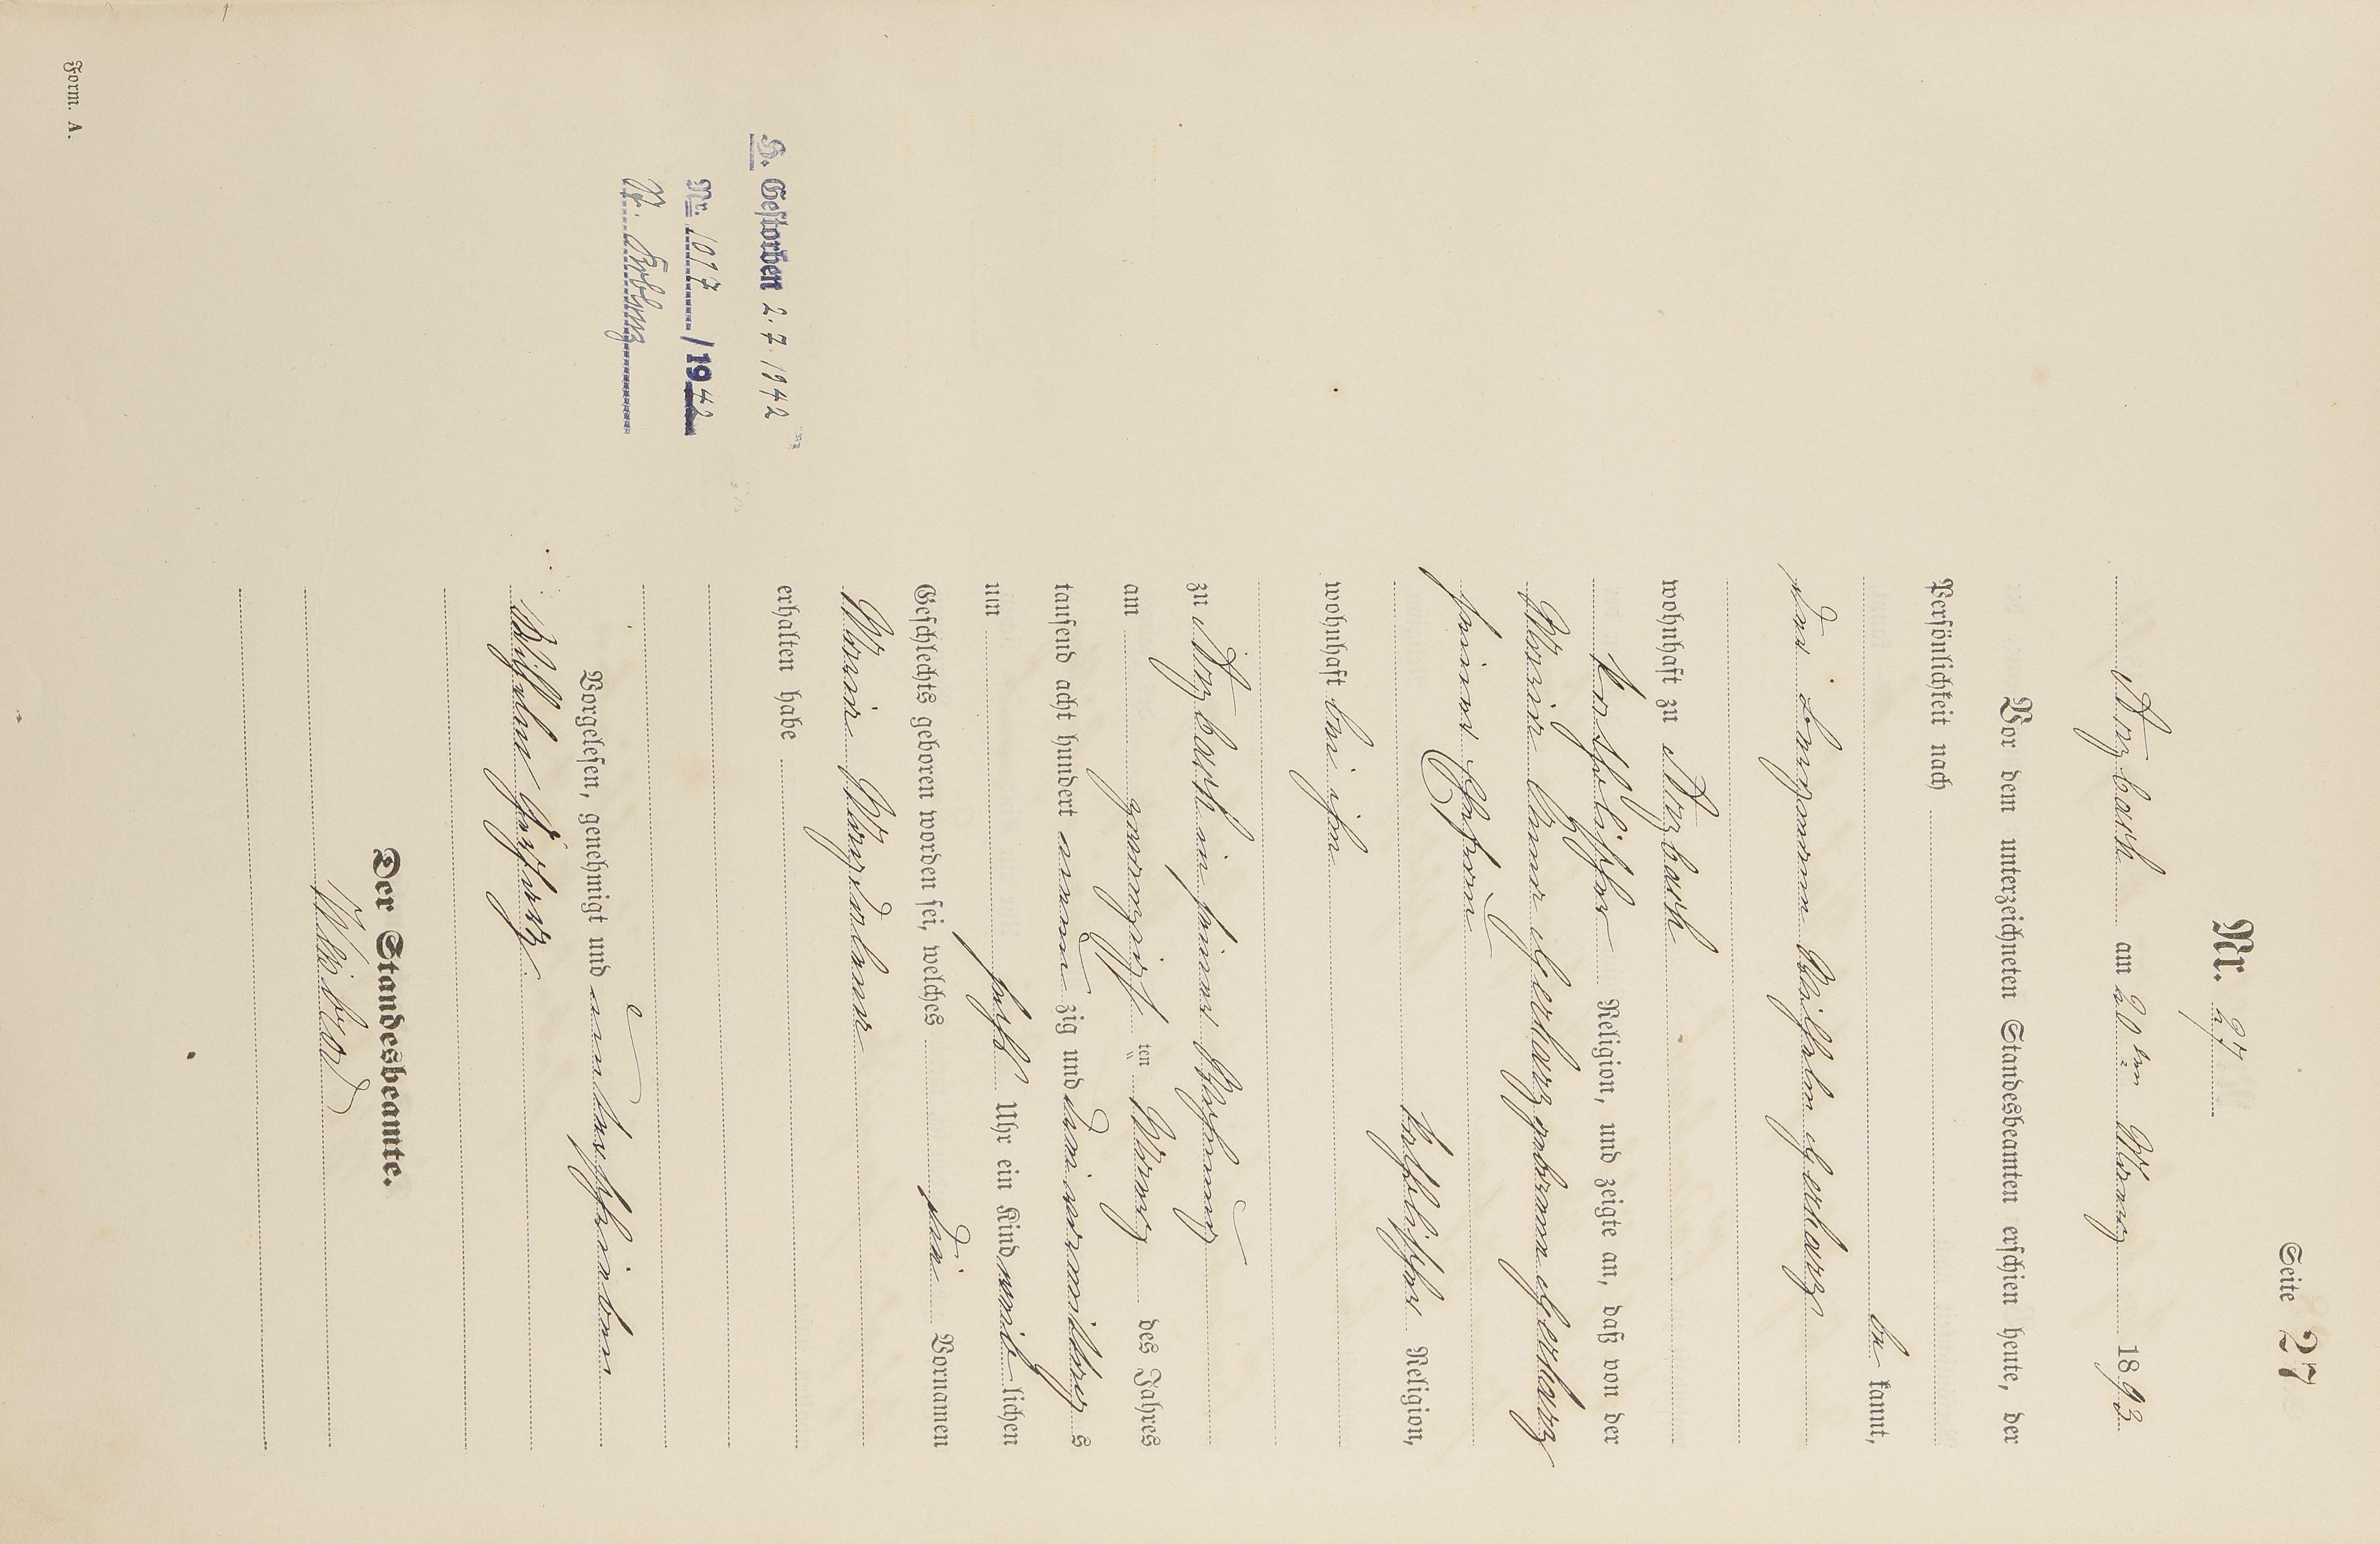 Seite 27
Nr. 27
Arzbach am 20ten März 1893
Vor dem unterzeichneten Standesbeamten erschien heute, der
Persönlichkeit nach
be kannt,
der Bergmann Wilhelm Gerharz
wohnhaft zu Arzbach
katholischer Religion, und zeigte an, daß von der
Maria Anna Gerharz geborene Gerharz
seiner Ehefrau
katholischer Religion,
wohnhaft bei ihm
zu Arzbach in seiner Wohnung
am zwanzigsten März des Jahres
tausend acht hundert neunzig und drei vormittags
um sechs Uhr ein Kind weiblichen
Geschlechts geboren worden sei, welches die Vornamen
Maria Magdalena
erhalten habe
Vorgelesen, genehmigt und unterschrieben
Wilhelm Gerharz
Der Standesbeamte.
H. Gestorben 2.7.1942
Nr. 1017/1942
Koblenz
Form. A.